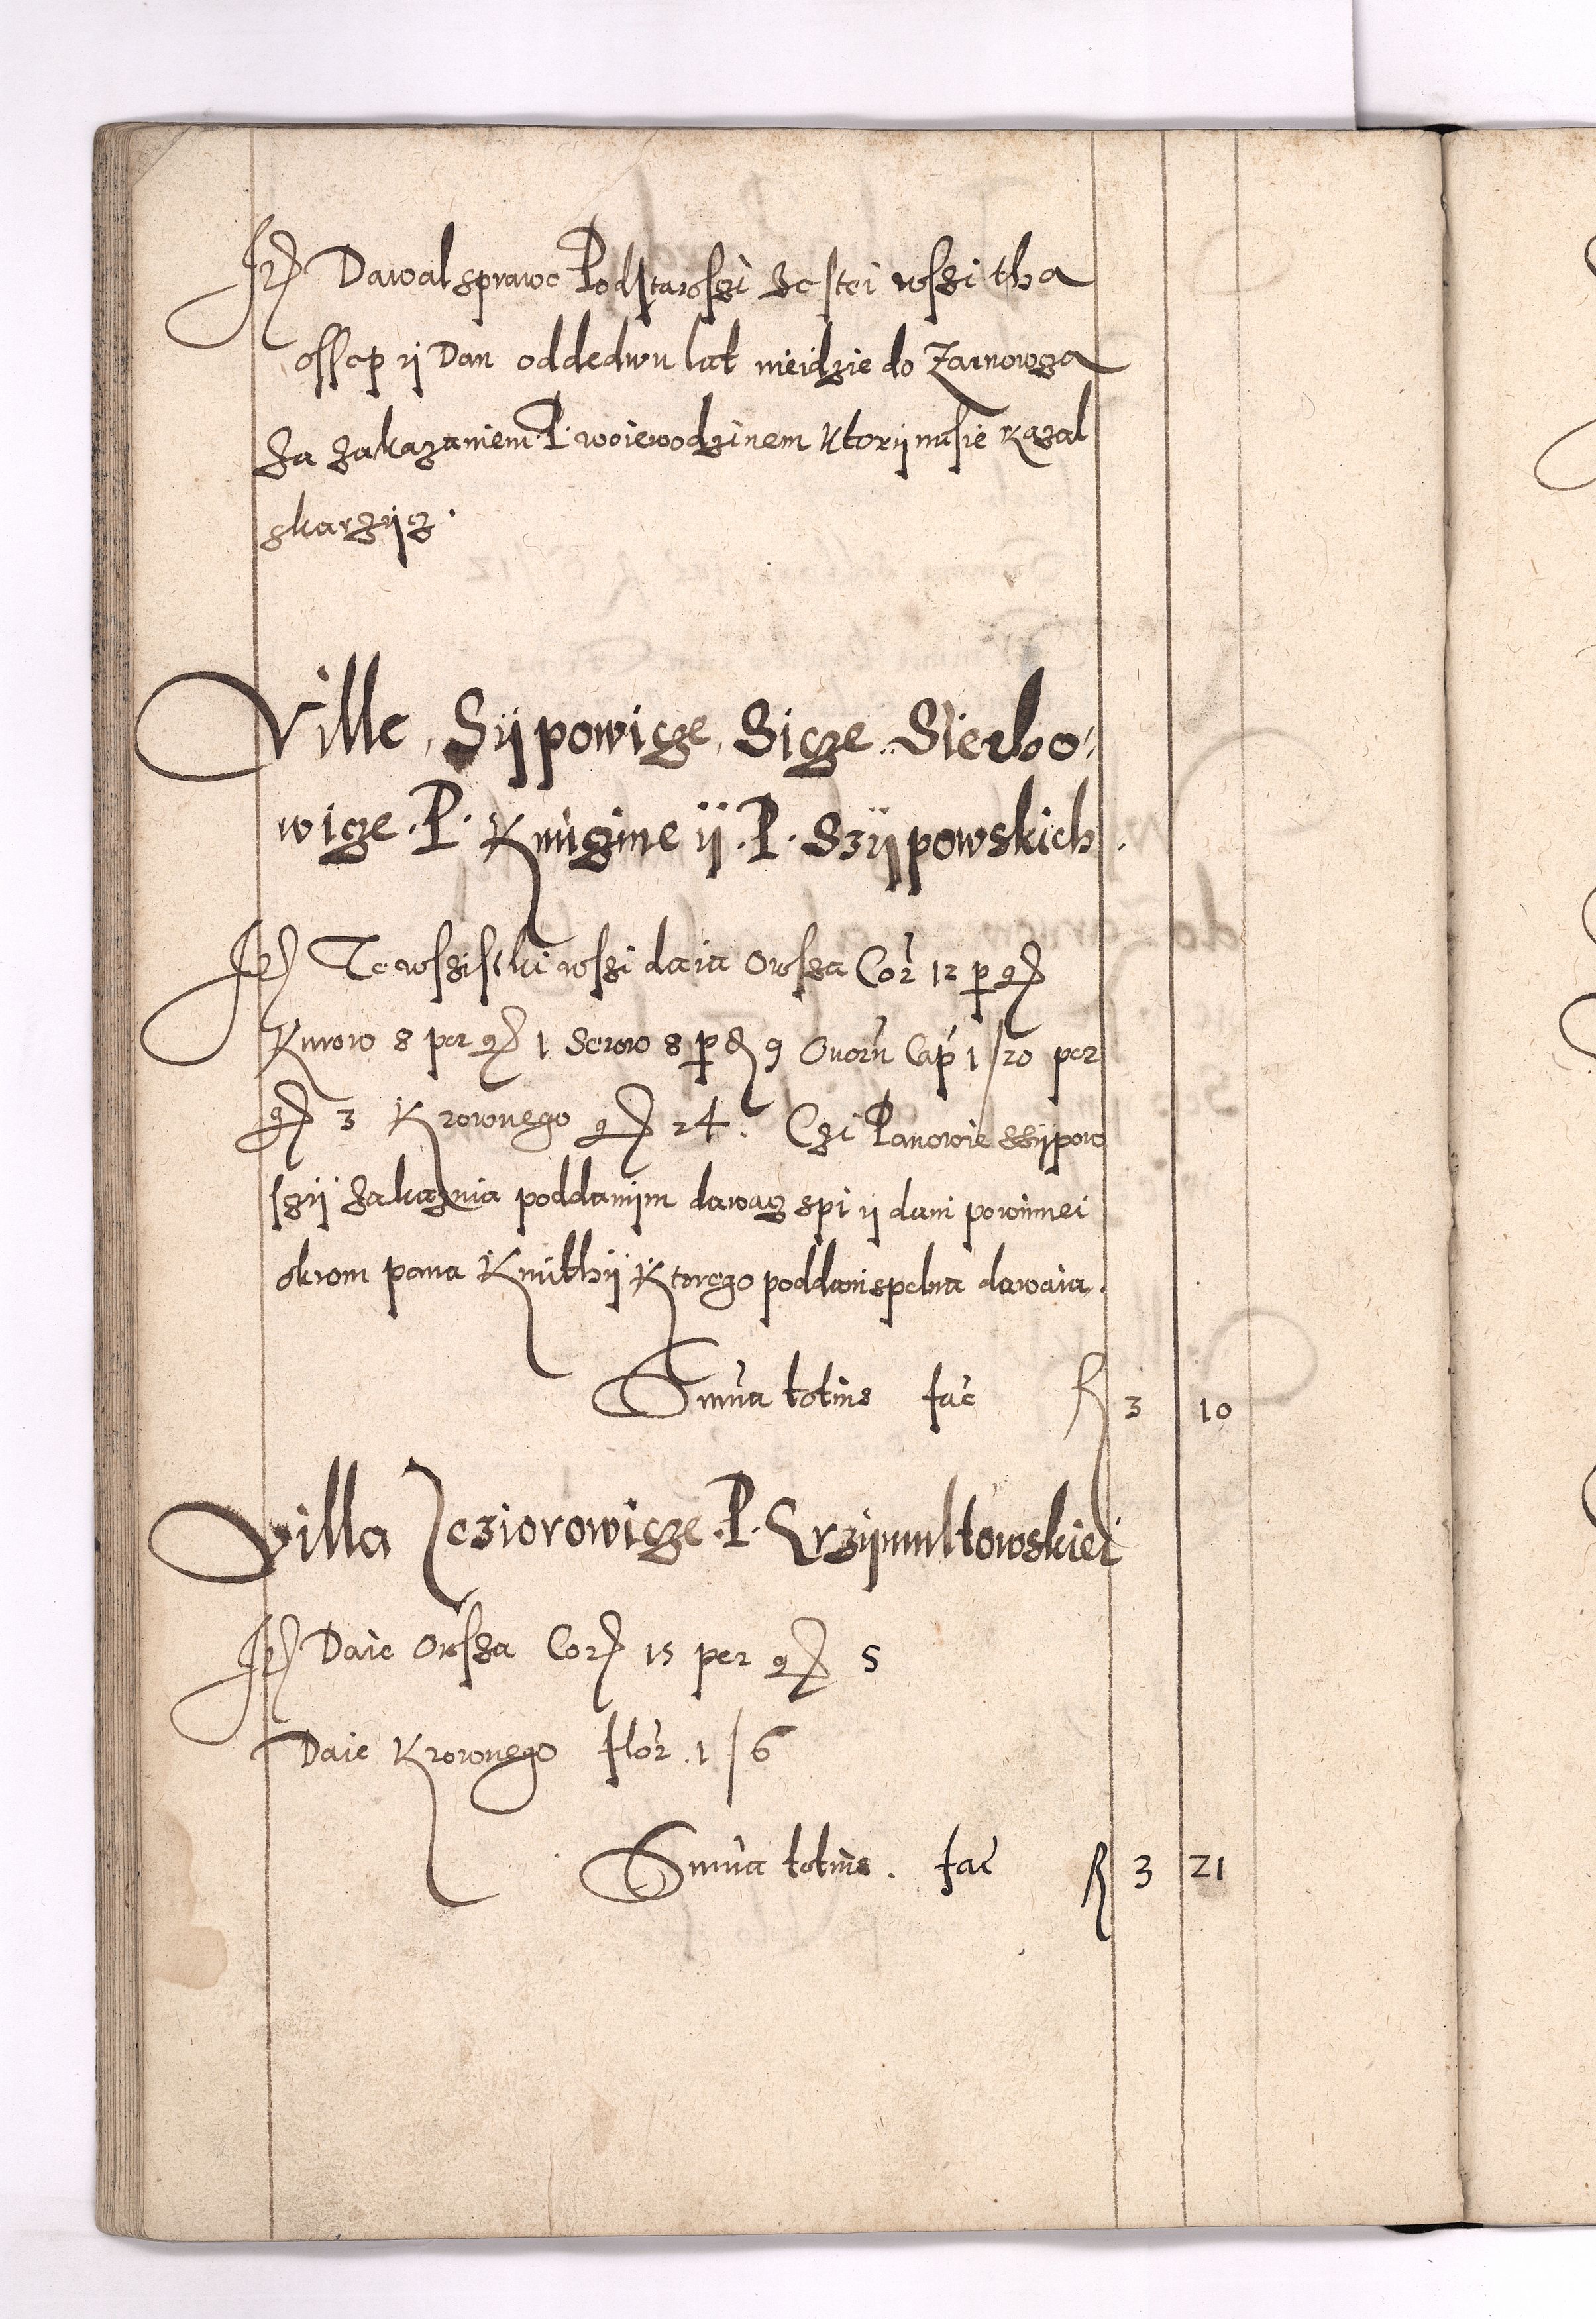 Itm Dawal sprawe Podstarosszi że stei wsszi tha
ossep ij Dan oddedwu lat nieidzie do Zarnowga
za zakazaniem P. woiewodzinem Ktorij nasie kazal
skarzijcz.
Ville, Sijpowicze, Sicze Sierbo:
wicze. P. Kmigine ij. P. Szijpowskich.
Itm Te wsszistki wsszi daia Owssa Cor 12 per gr
Kurow 8 per gr 1 Serow 8 per d 9 Ouoru Cap 1/20 per
gr 3 Krownego gr 24. Czi Panowie Szijpow
sczij zakazuia poddanijm dawacz spi ij dani powinnei
okrom pana Kmithij Ktorego poddani spelna dawaia.
Suma totius fac R 3 10
Villa Jeziorowicze. P. Krzijmultowskiei
Itm Daie Owssa Cor 15 per gr 5
Daie Krownego flor. 1/6
Suma totius. fac R 3 21